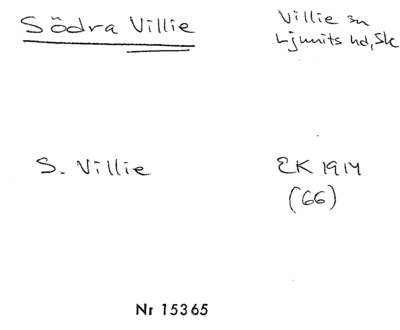 Södra Villie
Villie sn
Ljunits hd, Sk
S. Villie
EK 1914
(66)
Nr 15365